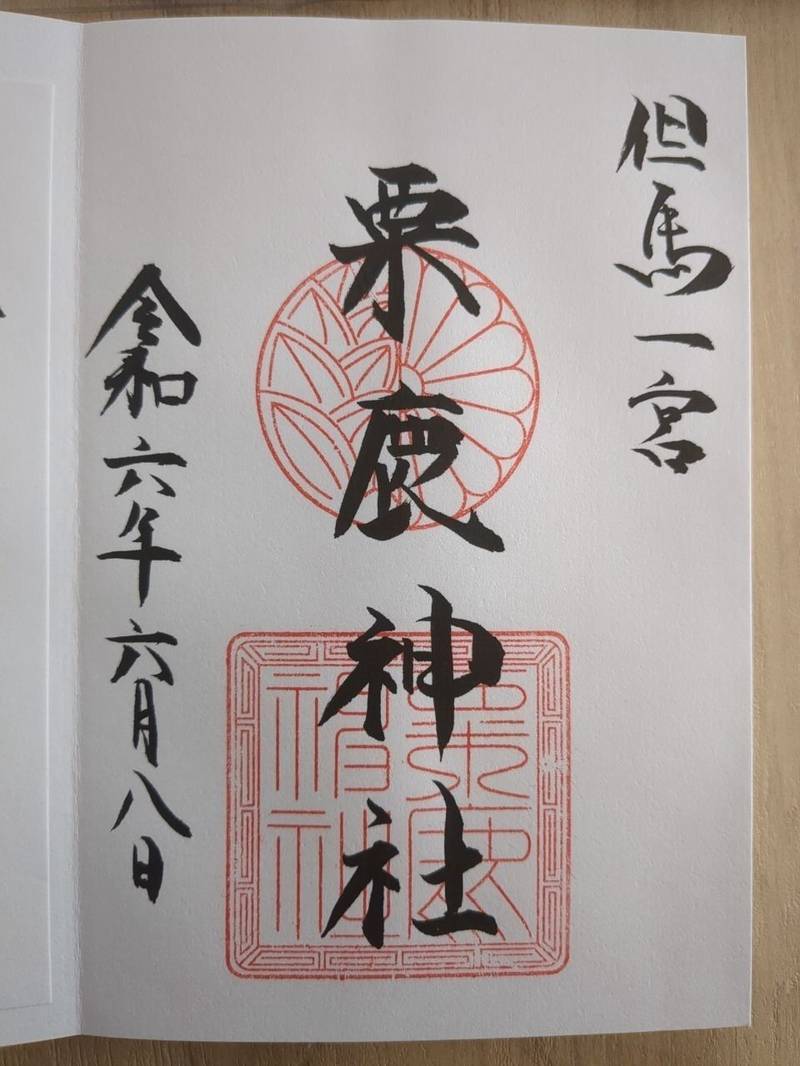 但馬一宮
粟鹿神社
令和六年六月八日
粟鹿神社